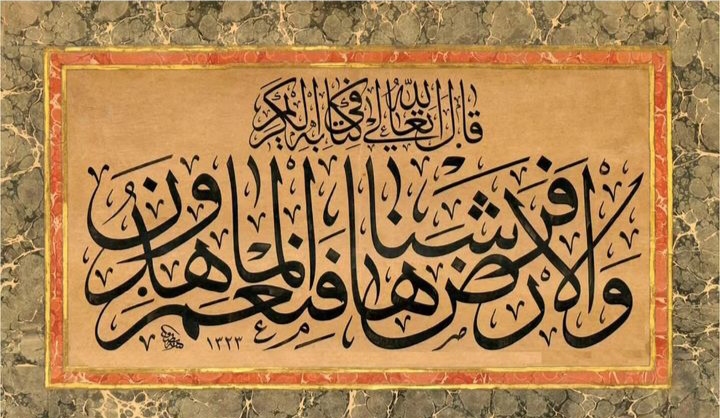 قال الله تعالى في كتابه الكريم
والأرض فرشناها فنعم الماهدون
١٣٢٣